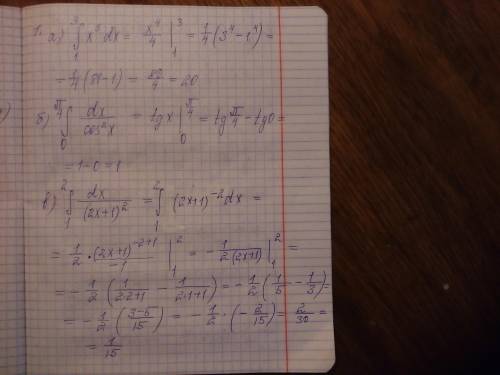 1. а) ∫₁³ x³ dx = x⁴/4 |₁³ = 1/4 (3⁴ − 1⁴) =
= 1/4 (81 − 1) = 80/4 = 20
б) ∫₀^(π/4) dx/cos²x = tg x |₀^(π/4) = tg π/4 − tg 0 =
= 1 − 0 = 1
в) ∫₁² dx/(2x+1)² = ∫₁² (2x+1)⁻² dx =
= 1/2 · (2x+1)⁻²⁺¹/−1 |₁² = − 1/2(2x+1) |₁² =
= − 1/2 (1/2·2+1 − 1/2·1+1) = − 1/2 (1/5 − 1/3) =
= − 1/2 (3−5/15) = − 1/2 · (− 2/15) = 2/30 =
= 1/15